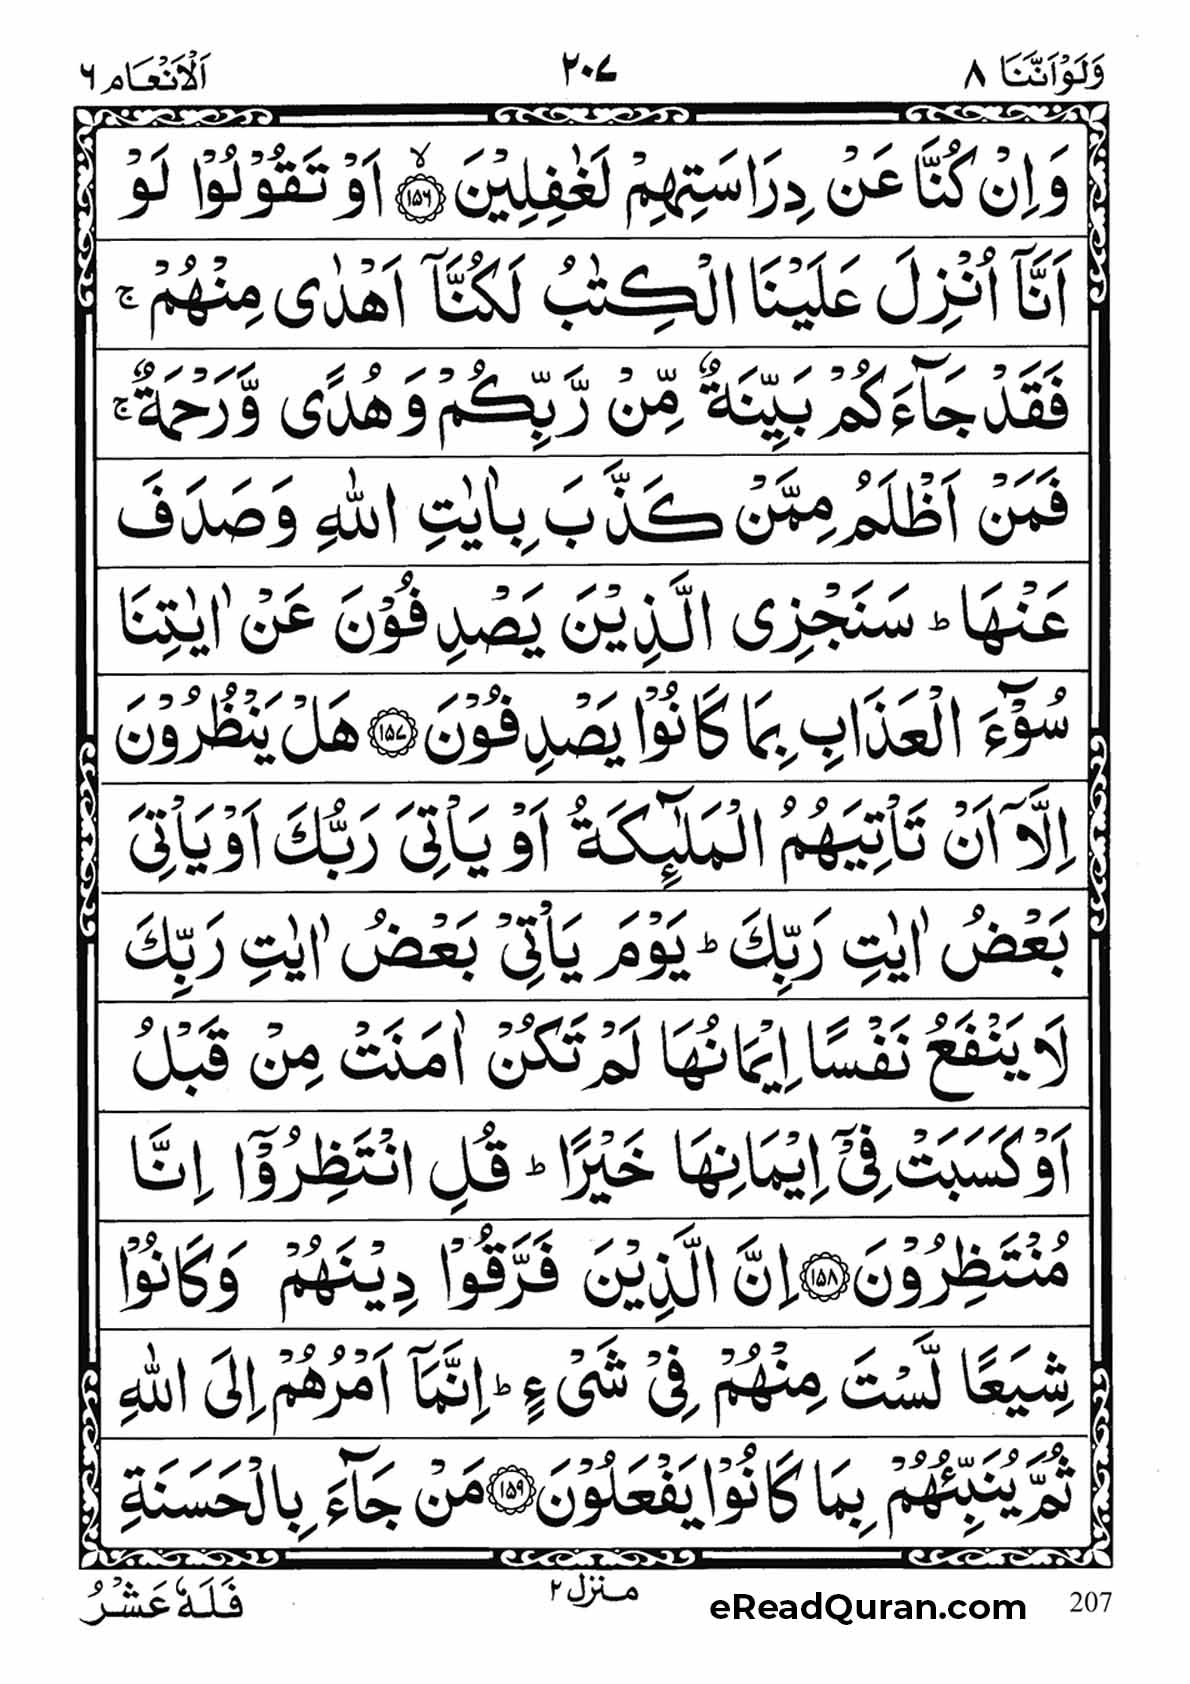 وَلَوْ اَنَّنَا ٨ ٢٠٧ اَلْاَنْعَام ٦
وَاِنْ كُنَّا عَنْ دِرَاسَتِهِمْ لَغٰفِلِيْنَ ۙ﴿١٥٦﴾ اَوْ تَقُوْلُوْا لَوْ
اَنَّاۤ اُنْزِلَ عَلَيْنَا الْكِتٰبُ لَكُنَّاۤ اَهْدٰى مِنْهُمْ ۚ
فَقَدْ جَآءَكُمْ بَيِّنَةٌ مِّنْ رَّبِّكُمْ وَهُدًى وَّرَحْمَةٌ ۚ
فَمَنْ اَظْلَمُ مِمَّنْ كَذَّبَ بِاٰيٰتِ اللّٰهِ وَصَدَفَ
عَنْهَا ؕ سَنَجْزِى الَّذِيْنَ يَصْدِفُوْنَ عَنْ اٰيٰتِنَا
سُوْٓءَ الْعَذَابِ بِمَا كَانُوْا يَصْدِفُوْنَ ﴿١٥٧﴾ هَلْ يَنْظُرُوْنَ
اِلَّاۤ اَنْ تَاْتِيَهُمُ الْمَلٰٓئِكَةُ اَوْ يَاْتِىَ رَبُّكَ اَوْ يَاْتِىَ
بَعْضُ اٰيٰتِ رَبِّكَ ؕ يَوْمَ يَاْتِىْ بَعْضُ اٰيٰتِ رَبِّكَ
لَا يَنْفَعُ نَفْسًا اِيْمَانُهَا لَمْ تَكُنْ اٰمَنَتْ مِنْ قَبْلُ
اَوْ كَسَبَتْ فِىْۤ اِيْمَانِهَا خَيْرًا ؕ قُلِ انْتَظِرُوْۤا اِنَّا
مُنْتَظِرُوْنَ ﴿١٥٨﴾ اِنَّ الَّذِيْنَ فَرَّقُوْا دِيْنَهُمْ وَكَانُوْا
شِيَعًا لَّسْتَ مِنْهُمْ فِىْ شَىْءٍ ؕ اِنَّمَاۤ اَمْرُهُمْ اِلَى اللّٰهِ
ثُمَّ يُنَبِّئُهُمْ بِمَا كَانُوْا يَفْعَلُوْنَ ﴿١٥٩﴾ مَنْ جَآءَ بِالْحَسَنَةِ
207 eReadQuran.com منزل ٢ فَلَهٗ عَشْرُ